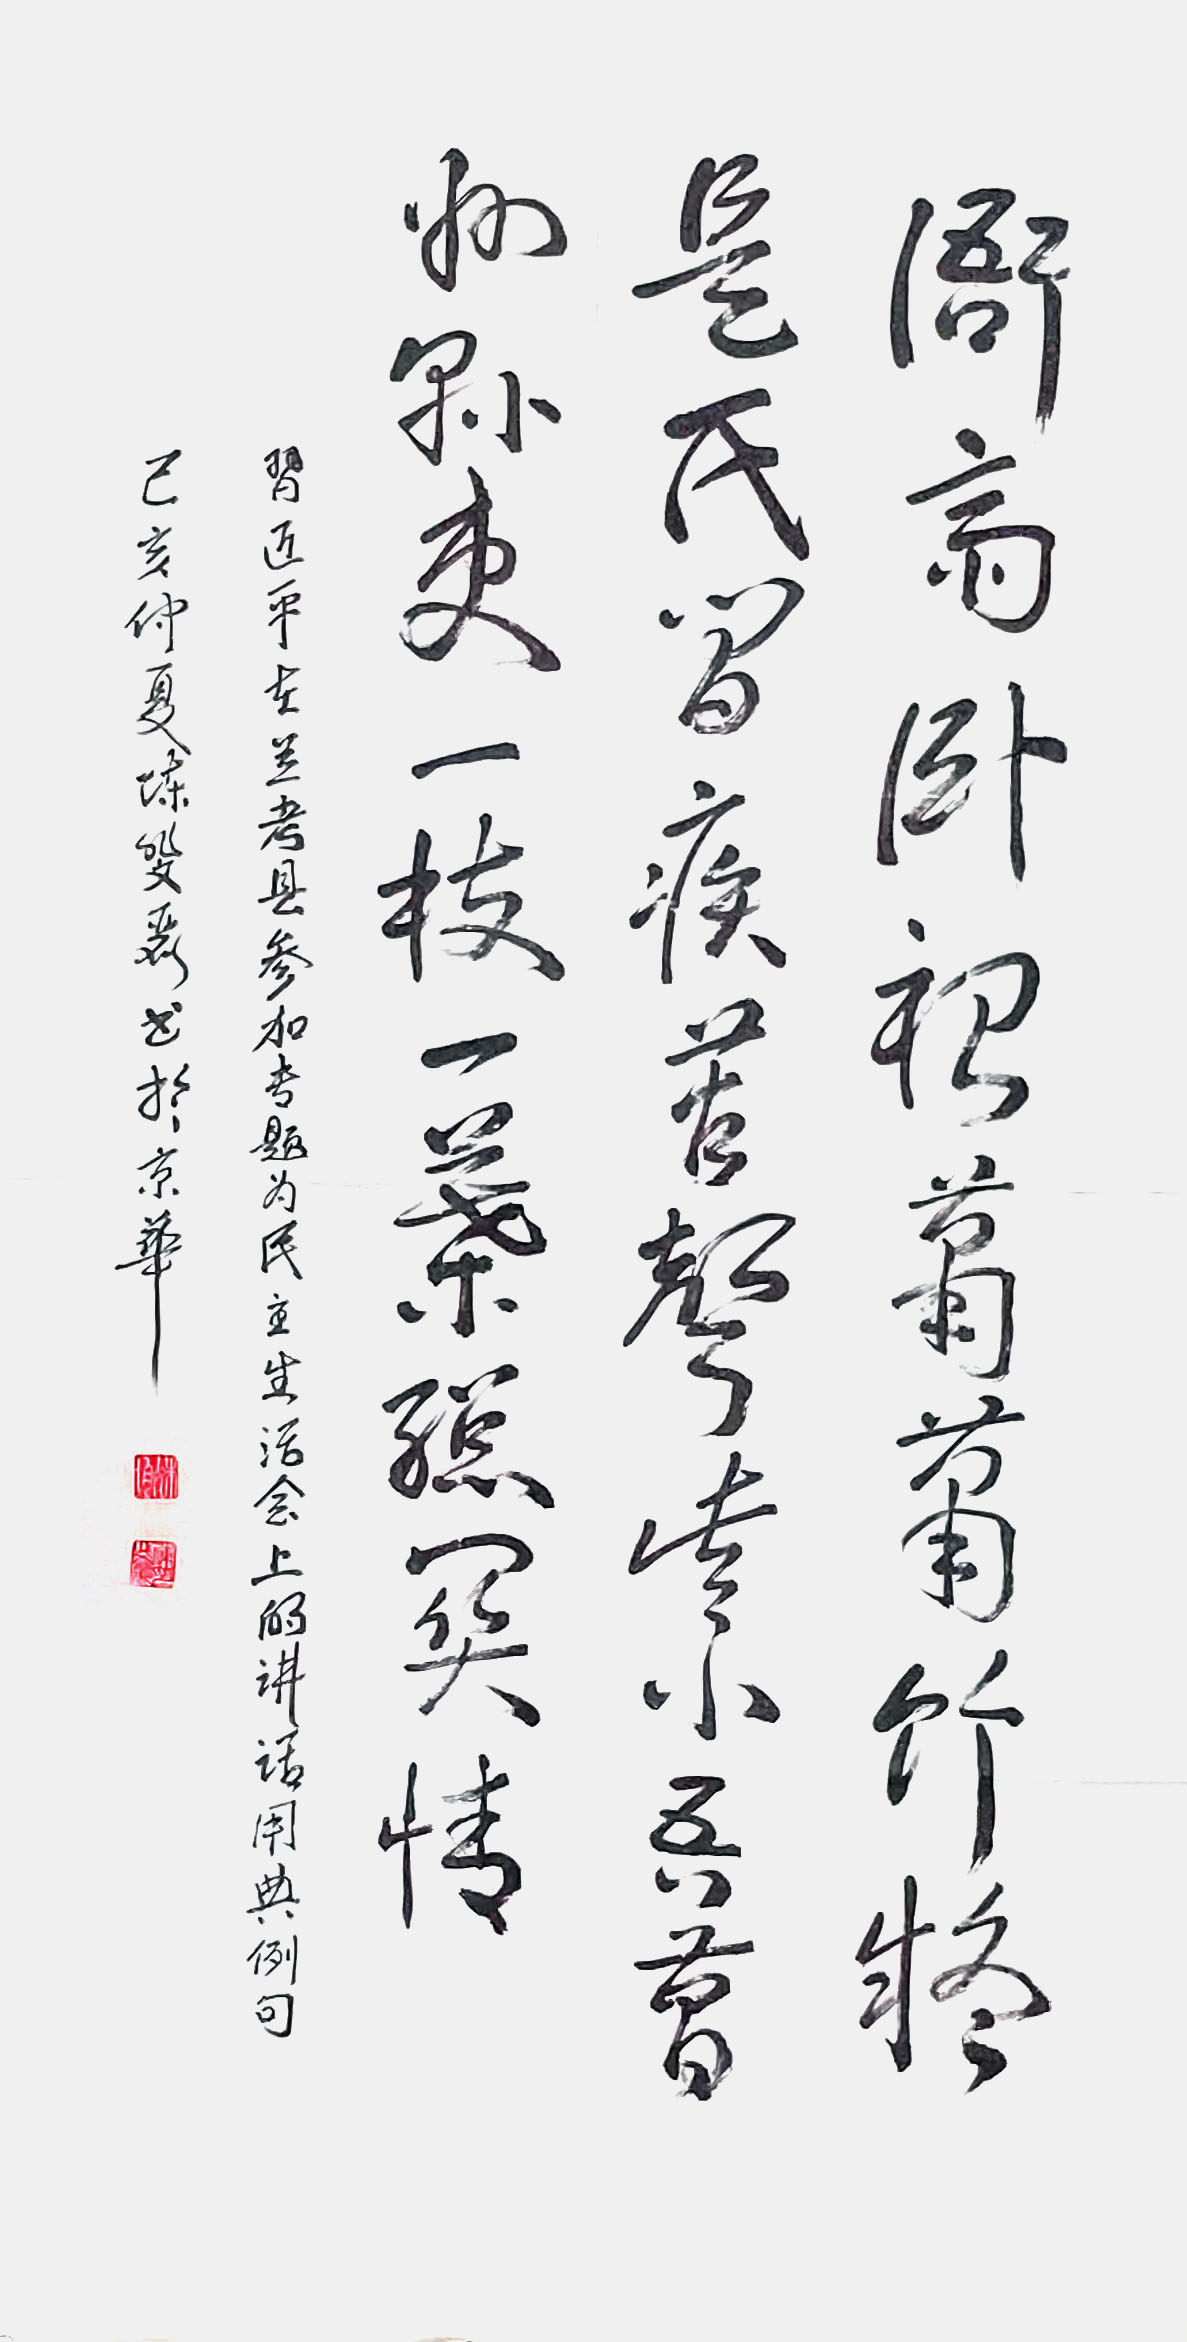 衙斋卧听萧萧竹疑
是民间疾苦聲些小吾曹
州縣吏一枝一葉總関情
習近平在兰考县参加专题为民主生活会上的讲话用典例句
己亥仲夏陈书於京華